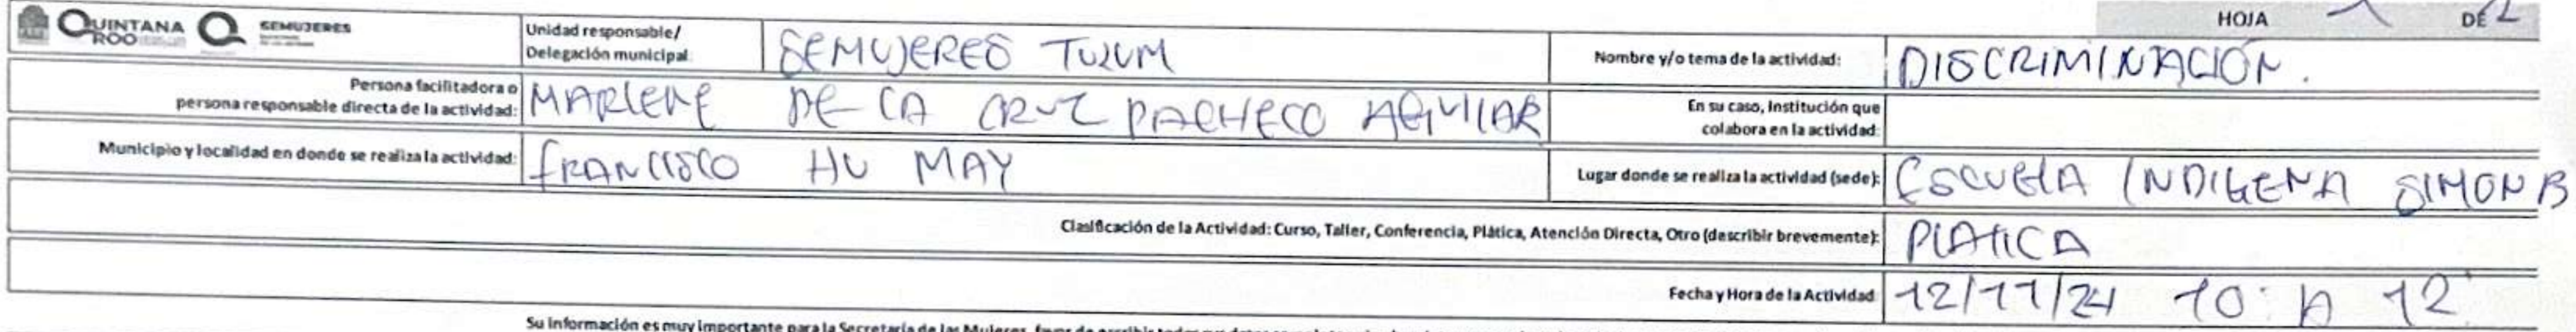 HOJA 1 DE 2
QUINTANA ROO SEMUJERES
Unidad responsable/ Delegación municipal: SEMUJERES TULUM
Nombre y/o tema de la actividad: DISCRIMINACIÓN.
Persona facilitadora o persona responsable directa de la actividad: MARLENE DE LA CRUZ PACHECO AGUILAR
En su caso, Institución que colabora en la actividad:
Municipio y localidad en donde se realiza la actividad: FRANCISCO HU MAY
Lugar donde se realiza la actividad (sede): ESCUELA INDIGENA SIMON B
Clasificación de la Actividad: Curso, Taller, Conferencia, Plática, Atención Directa, Otro (describir brevemente): PLATICA
Fecha y Hora de la Actividad 12/11/24 10: A 12
Su información es muy importante para la Secretaría de las Mujeres, favor de escribir todos sus datos